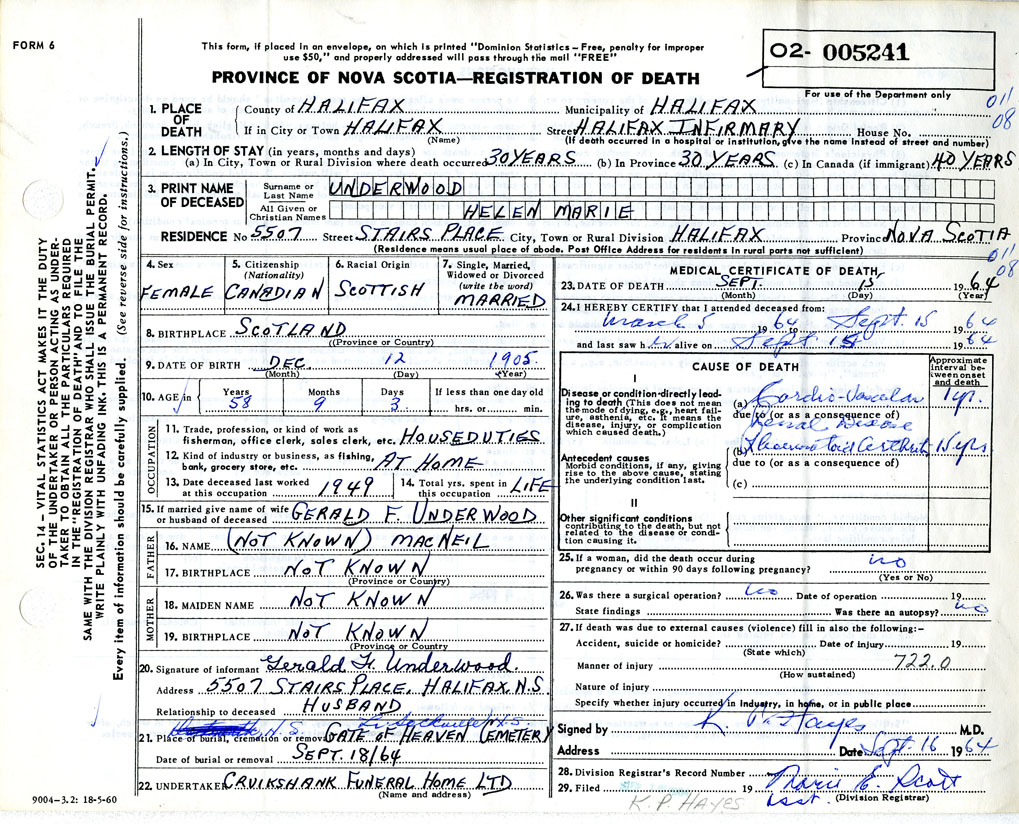 FORM 6
This form, if placed in an envelope, on which is printed "Dominion Statistics – Free, penalty for improper
use $50," and properly addressed will pass through the mail "FREE"
PROVINCE OF NOVA SCOTIA—REGISTRATION OF DEATH
02- 005241
For use of the Department only
011
08
SEC. 14 – VITAL STATISTICS ACT MAKES IT THE DUTY
OF THE UNDERTAKER OR PERSON ACTING AS UNDER-
TAKER TO OBTAIN ALL THE PARTICULARS REQUIRED
IN THE "REGISTRATION OF DEATH" AND TO FILE THE
SAME WITH THE DIVISION REGISTRAR WHO SHALL ISSUE THE BURIAL PERMIT.
WRITE PLAINLY WITH UNFADING INK. THIS IS A PERMANENT RECORD.
Every item of information should be carefully supplied. (See reverse side for instructions.)
1. PLACE OF DEATH County of HALIFAX Municipality of HALIFAX
If in City or Town HALIFAX (Name) Street HALIFAX INFIRMARY House No.
(If death occurred in a hospital or institution, give the name instead of street and number)
2. LENGTH OF STAY (in years, months and days)
(a) In City, Town or Rural Division where death occurred 30 YEARS (b) In Province 30 YEARS (c) In Canada (if immigrant) 40 YEARS
3. PRINT NAME OF DECEASED Surname or Last Name UNDERWOOD
All Given or Christian Names HELEN MARIE
RESIDENCE No 5507 Street STAIRS PLACE City, Town or Rural Division HALIFAX Province NOVA SCOTIA
(Residence means usual place of abode. Post Office Address for residents in rural parts not sufficient)
4. Sex FEMALE
5. Citizenship (Nationality) CANADIAN
6. Racial Origin SCOTTISH
7. Single, Married, Widowed or Divorced (write the word) MARRIED
8. BIRTHPLACE SCOTLAND
(Province or Country)
9. DATE OF BIRTH DEC. 12 1905
(Month) (Day) (Year)
10. AGE in Years 58 Months 9 Days 3 If less than one day old hrs. or min.
OCCUPATION
11. Trade, profession, or kind of work as
fisherman, office clerk, sales clerk, etc. HOUSEDUTIES
12. Kind of industry or business, as fishing,
bank, grocery store, etc. AT HOME
13. Date deceased last worked at this occupation 1949 14. Total yrs. spent in this occupation LIFE
15. If married give name of wife or husband of deceased GERALD F. UNDERWOOD
FATHER
16. NAME (NOT KNOWN) MACNEIL
17. BIRTHPLACE NOT KNOWN
(Province or Country)
MOTHER
18. MAIDEN NAME NOT KNOWN
19. BIRTHPLACE NOT KNOWN
(Province or Country)
20. Signature of informant Gerald F. Underwood.
Address 5507 STAIRS PLACE, HALIFAX, N.S.
Relationship to deceased HUSBAND
N.S. Lr. Sackville N.S.
21. Place of burial, cremation or removal GATE OF HEAVEN CEMETERY
Date of burial or removal SEPT. 18/64
22. UNDERTAKER CRUIKSHANK FUNERAL HOME LTD
(Name and address)
9004-3.2: 18-5-60
011
08
MEDICAL CERTIFICATE OF DEATH
23. DATE OF DEATH SEPT. 15 1964
(Month) (Day) (Year)
24. I HEREBY CERTIFY that I attended deceased from:
March 5 1964 to Sept. 15 1964
and last saw her alive on Sept. 15 1964
CAUSE OF DEATH
Approximate interval between onset and death
I
Disease or condition directly lead-
ing to death (This does not mean
the mode of dying, e.g., heart fail-
ure, asthenia, etc. It means the
disease, injury, or complication
which caused death.)
(a) Cardio-Vascular 1 yr.
due to (or as a consequence of)
Renal Disease
(b) Rheumatoid Arthritis 15 yrs
due to (or as a consequence of)
(c)
Antecedent causes
Morbid conditions, if any, giving
rise to the above cause, stating
the underlying condition last.
II
Other significant conditions
contributing to the death, but not
related to the disease or condi-
tion causing it.
25. If a woman, did the death occur during
pregnancy or within 90 days following pregnancy? no
(Yes or No)
26. Was there a surgical operation? no Date of operation 19
State findings Was there an autopsy? no
27. If death was due to external causes (violence) fill in also the following:–
Accident, suicide or homicide? Date of injury 19
(State which)
722.0
Manner of injury
(How sustained)
Nature of injury
Specify whether injury occurred in Industry, in home, or in public place
Signed by K. P. Hayes M.D.
Address Date Sept. 16 1964
28. Division Registrar's Record Number
29. Filed 19 Marie E. Scott
Asst. (Division Registrar)
K. P. HAYES